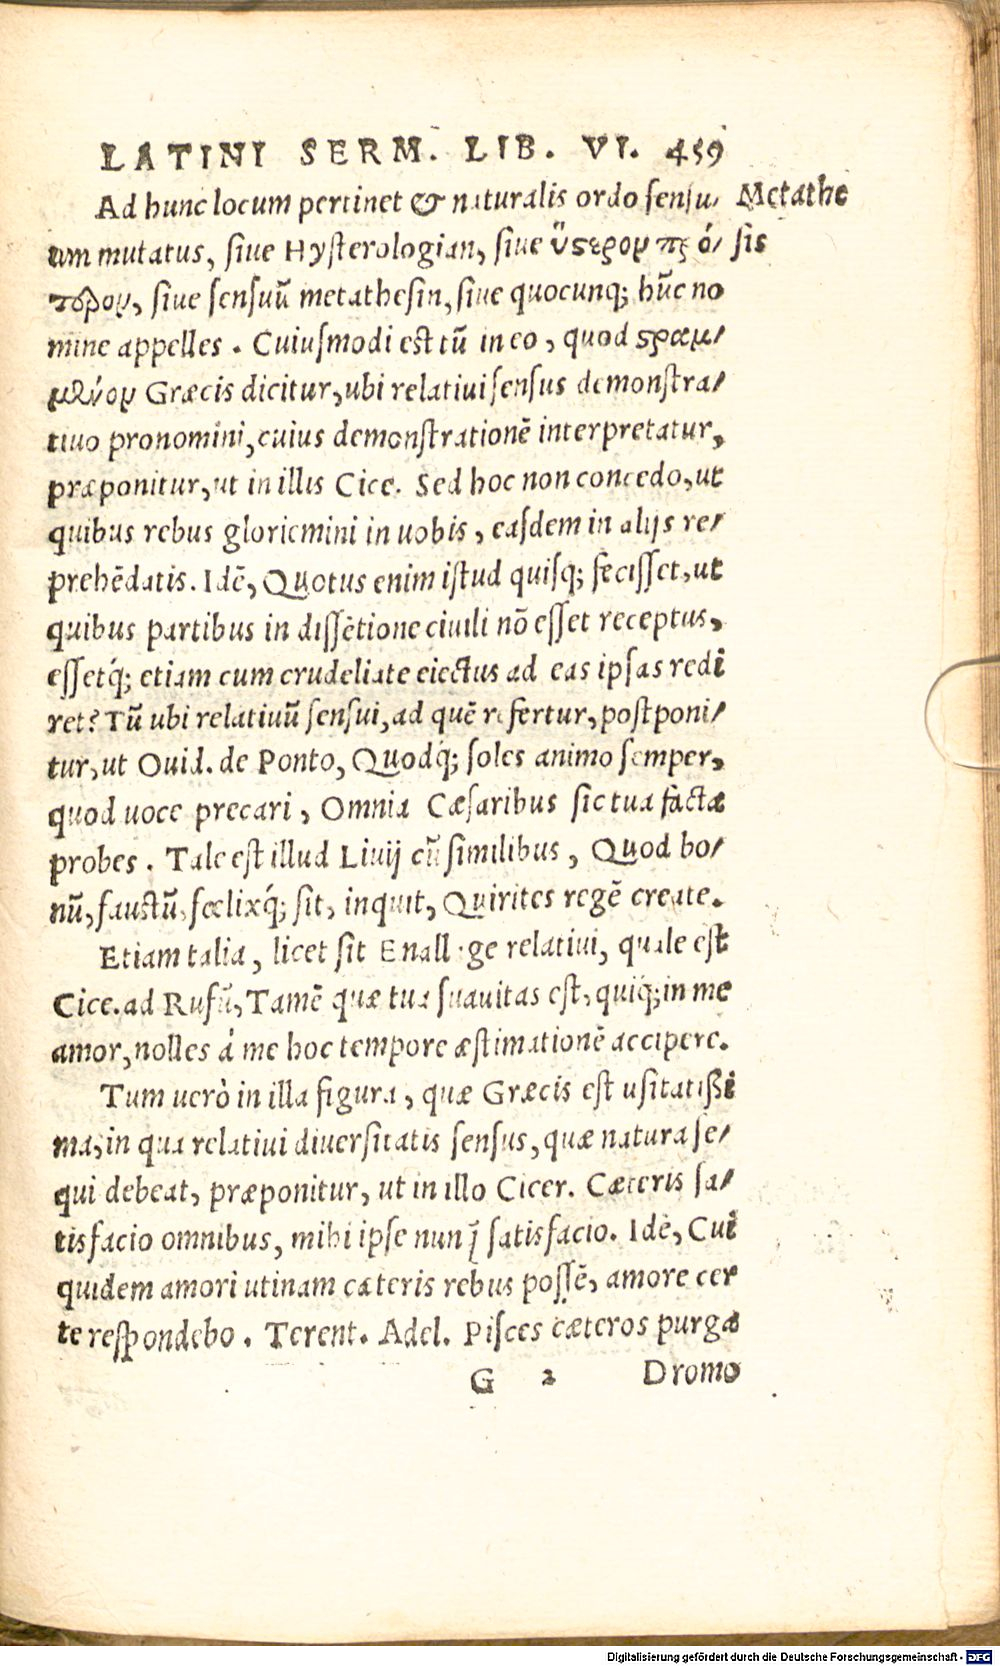 LATINI SERM. LIB. VI. 459
Ad hunc locum pertinet & naturalis ordo sensu- Metathe
um mutatus, siue Hysterologian, siue ὕστερον πρό- sis
τερον, siue sensuū metathesin, siue quocunq; hūc no
mine appelles. Cuiusmodi est tū in eo, quod
Græcis dicitur, ubi relatiui sensus demonstra-
tiuo pronomini, cuius demonstrationē interpretatur,
præponitur, ut in illis Cice. Sed hoc non concedo, ut
quibus rebus gloriemini in uobis, easdem in alijs re-
prehēdatis. Idē, Quotus enim istud quisq; fecisset, ut
quibus partibus in dissētione ciuili nō esset receptus,
essetq́; etiam cum crudeliate eiectus ad eas ipsas redi
ret? Tū ubi relatiuū sensui, ad quē refertur, postponi-
tur, ut Ouid. de Ponto, Quodq́; soles animo semper,
quod uoce precari, Omnia Cæsaribus sic tua facta
probes. Tale est illud Liuij cū similibus, Quod bo-
nū, faustū, fœlixq́; sit, inquit, Quirites regē create.
Etiam talia, licet sit Enallage relatiui, quale est
Cice. ad Rufū, Tamē quæ tua suauitas est, quiq́; in me
amor, nolles á me hoc tempore æstimationē accipere.
Tum uerò in illa figura, quæ Græcis est usitatißi
ma, in qua relatiui diuersitatis sensus, quæ natura se-
qui debeat, præponitur, ut in illo Cicer. Cæteris sa-
tisfacio omnibus, mihi ipse nunq̃ satisfacio. Idē, Cui
quidem amori utinam cæteris rebus possē, amore cer
te respondebo. Terent. Adel. Pisces cæteros purga
G 2 Dromo
Digitalisierung gefördert durch die Deutsche Forschungsgemeinschaft - DFG